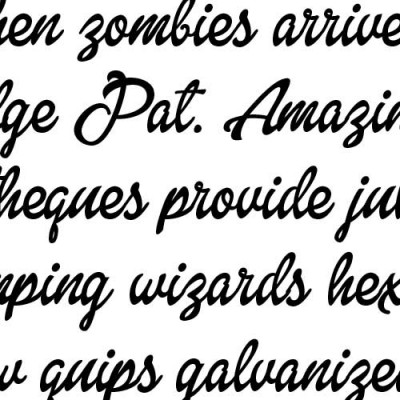 hen zombies arrive
dge Pat. Amazin
theques provide ju
mping wizards hex
w quips galvanize